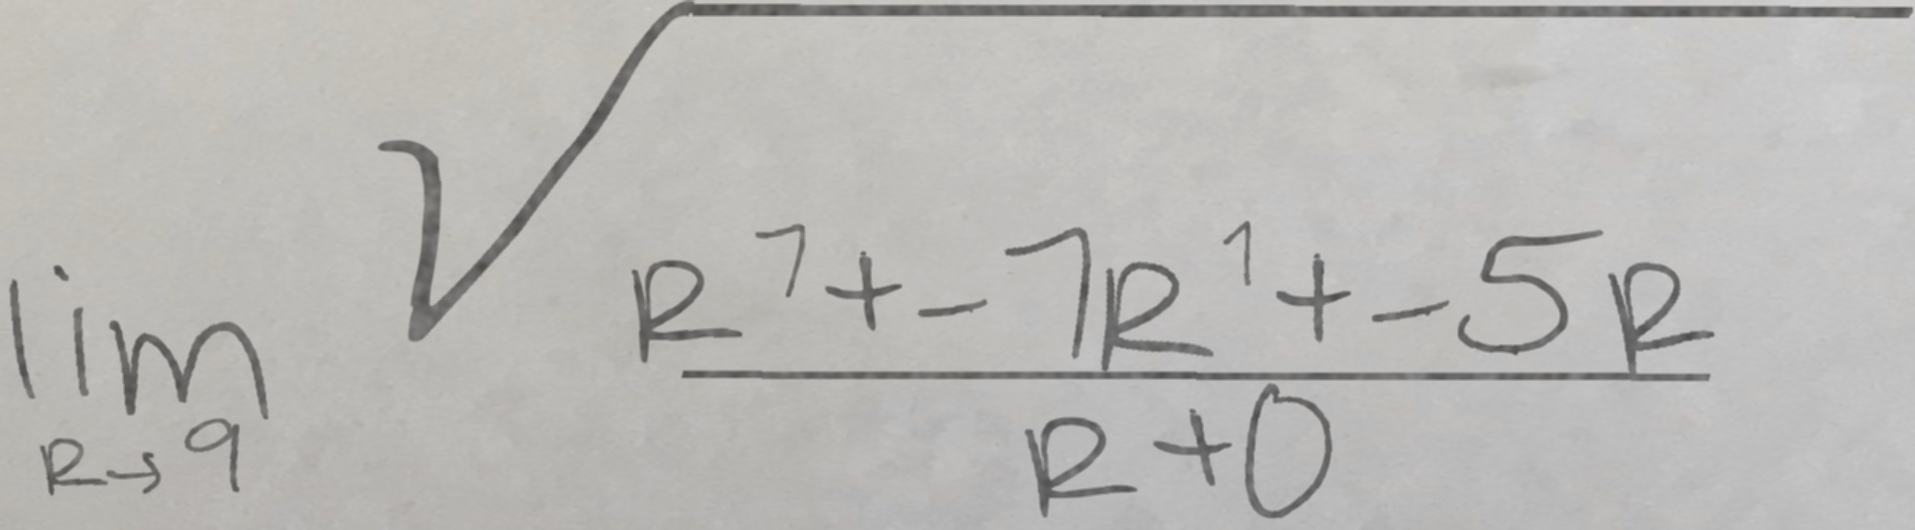 \lim_{R \to 9} \sqrt{\frac{R^7 + -7R^1 + -5R}{R + 0}}